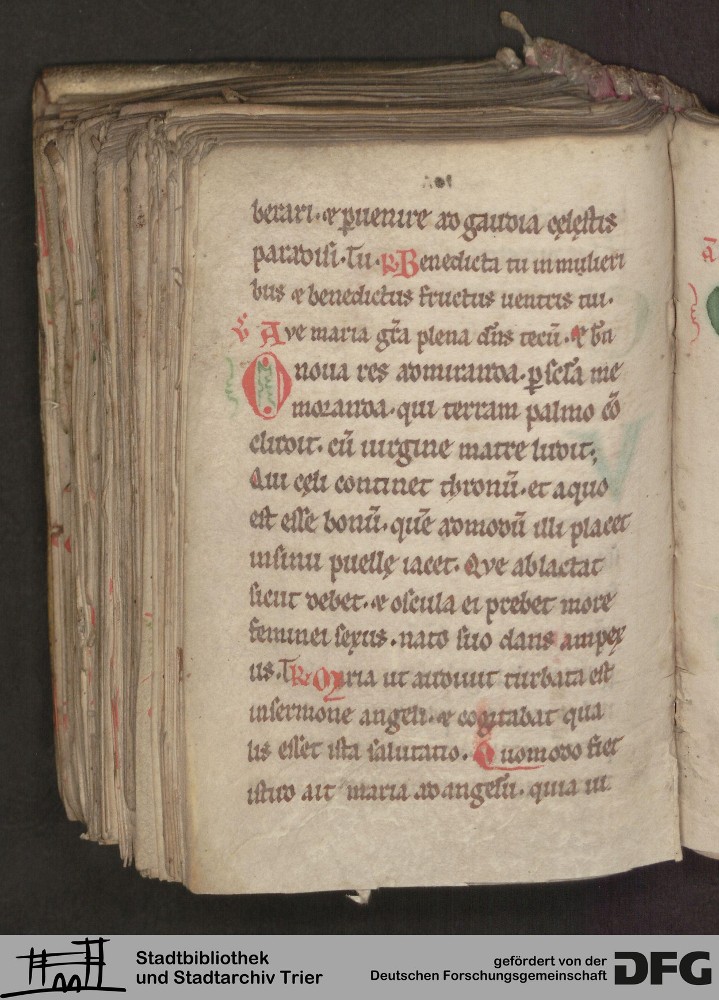 berari · & ꝑuenire ad gaudia cęlęstis
paradisi · Tu · R Benedicta tu in mulieri
bus & benedictus fructus uentris tui ·
Ave maria gr̄a plena dn̄s tecū · & bn̄
O noua res admiranda · ꝑ scl̄a me
moranda · qui terram palmo cō
cludit · cū uirgine matre ludit ;
Qui cęli continet thronū · et a quo
est esse bonū · quē admodū illi placet
in sinu puellę iacet · Qve ablactat
sicut debet · & oscula ei prebet more
feminei sexus · nato suo dans amplex
us · T R Maria ut audiuit turbata est
in sermone angeli · & cogitabat qua
lis esset ista salutatio · Quomodo fiet
istud ait maria ad angelū · quia ui
Stadtbibliothek
und Stadtarchiv Trier
gefördert von der
Deutschen Forschungsgemeinschaft
DFG